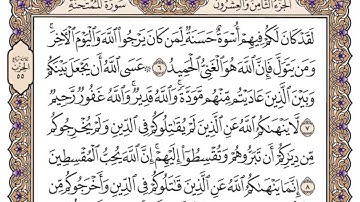 الجزء الثامن والعشرون سورة الممتحنة
لَقَدْ كَانَ لَكُمْ فِيهِمْ أُسْوَةٌ حَسَنَةٌ لِّمَن كَانَ يَرْجُوا۟ ٱللَّهَ وَٱلْيَوْمَ ٱلْـَٔاخِرَ ۚ
وَمَن يَتَوَلَّ فَإِنَّ ٱللَّهَ هُوَ ٱلْغَنِىُّ ٱلْحَمِيدُ ٦ ۞ عَسَى ٱللَّهُ أَن يَجْعَلَ بَيْنَكُمْ
وَبَيْنَ ٱلَّذِينَ عَادَيْتُم مِّنْهُم مَّوَدَّةً ۚ وَٱللَّهُ قَدِيرٌ ۚ وَٱللَّهُ غَفُورٌ رَّحِيمٌ
٧ لَّا يَنْهَىٰكُمُ ٱللَّهُ عَنِ ٱلَّذِينَ لَمْ يُقَٰتِلُوكُمْ فِى ٱلدِّينِ وَلَمْ يُخْرِجُوكُم
مِّن دِيَٰرِكُمْ أَن تَبَرُّوهُمْ وَتُقْسِطُوٓا۟ إِلَيْهِمْ ۚ إِنَّ ٱللَّهَ يُحِبُّ ٱلْمُقْسِطِينَ
٨ إِنَّمَا يَنْهَىٰكُمُ ٱللَّهُ عَنِ ٱلَّذِينَ قَٰتَلُوكُمْ فِى ٱلدِّينِ وَأَخْرَجُوكُم مِّن
الحزب
٥٥